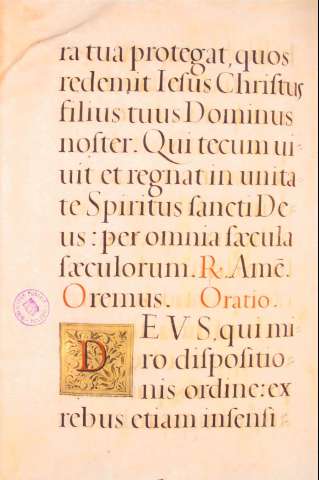 ra tua protegat, quos
redemit Ieſus Chriſtus
filius tuus Dominus
noſter. Qui tecum ui-
uit et regnat in unita
te Spiritus ſancti De-
us: per omnia ſæcula
ſæculorum. R. Amē.
Oremus. Oratio.
DEVS, qui mi-
ro diſpoſitio-
nis ordine: ex
rebus etiam inſenſi-